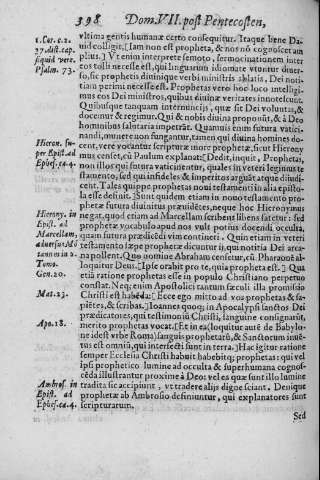 398 Dom.VII. post Pentecosten,
1. Cor. c. 2.
37. dist. cap.
siquid vere.
Psalm. 73.
Hieron. su-
per Epist. ad
Ephes. ca. 4.
Hierony. in
Epist. ad
Marcellam,
aduersus Mō
tanum in 2.
Tomo.
Gen. 20.
Mat. 23.
Apo. 18.
Ambros. in
Epist. ad
Ephes. ca. 4.
vltima gentis humanæ certo consequitur. Itaque bene Da-
uid collegit, [Iam non est propheta, & nos nō cognoscet am
plius.] Vt enim interprete semoto, sermocinationem inter
eos tolli necesse est, qui linguarum idiomate vtuntur diuer-
so, sic prophetis diuinæque verbi ministris ablatis, Dei noti-
tiam perimi necesse est. Prophetas vero hoc loco intelligi-
mus eos Dei ministros, quibus diuinæ veritates innotescunt.
Quibusque tanquam internuncijs, quæ sit Dei voluntas, &
docemur & regimur. Qui & nobis diuina proponūt, & à Deo
hominibus salutaria imperāt. Quamuis enim futura vatici-
nandi, munere non fungantur, tamen qui diuina homines do-
cent, vere vocantur scripturæ more prophetæ, sicut Hierony
mus censet, cū Paulum explanat: [Dedit, inquit, Prophetas,
non illos qui futura vaticinentur, quales in veteri leguntur te
stamento, sed qui infideles & imperitos arguāt atque diiudi-
cent. Tales quippe prophetas noui testamenti in alia episto-
la esse definit. Sunt quidem etiam in nouo testamento pro-
phetæ futura diuinitus prædicentes, neque hoc Hieronymus
negat, quod etiam ad Marcellam scribens libens fatetur: sed
prophetæ vocabulo apud nos vult potius docendi occulta,
quam futura prædicēdi vim contineri. Quin etiam in veteri
testamento sæpe prophetæ dicuntur ij, qui notitia Dei arca-
na pollent. Quo nomine Abraham censetur, cū Pharaonē al-
loquitur Deus. [Ipse orabit pro te, quia propheta est.] Qua
etiā ratione prophetas esse in populo Christiano perpetuo
constat. Neq; enim Apostolici tantum sæculi illa promissio
Christi est habēda: [Ecce ego mitto ad vos prophetas & sa-
piētes, & scribas.] Ioannes quoq; in Apocalypsi sanctos Dei
prædicatores, qui testimoniū Christi, sanguine consignarūt,
merito prophetas vocat. [Et in ea (loquitur autē de Babylo-
ne id est vrbe Roma) sanguis prophetarū, & Sanctorum inuē-
tus est omniū, qui interfecti sunt in terra.] Hac igitur ratione
semper Ecclesia Christi habuit habebitq; prophetas: qui vel
ipsi prophetico lumine ad occulta & superhumana cognos-
cēda illustrantur proxime à Deo: vel ea quæ sunt illo lumine
tradita sic accipiunt, vt tradere alijs digne sciant. Denique
prophetæ ab Ambrosio definiuntur, qui explanatores sunt
scripturarum.
Sed